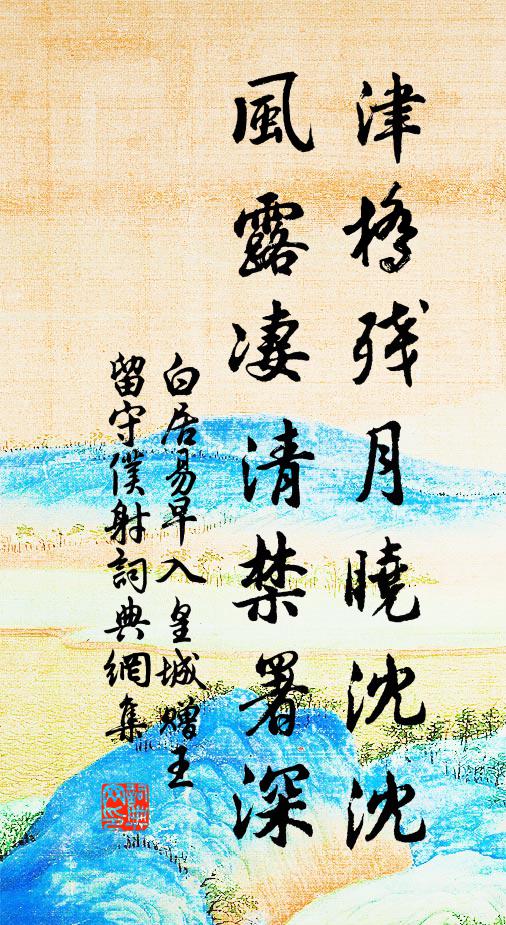 津橋残月曉沈沈
風露凄清禁署深
白居易早入皇城贈王
留守僕射詞典網集